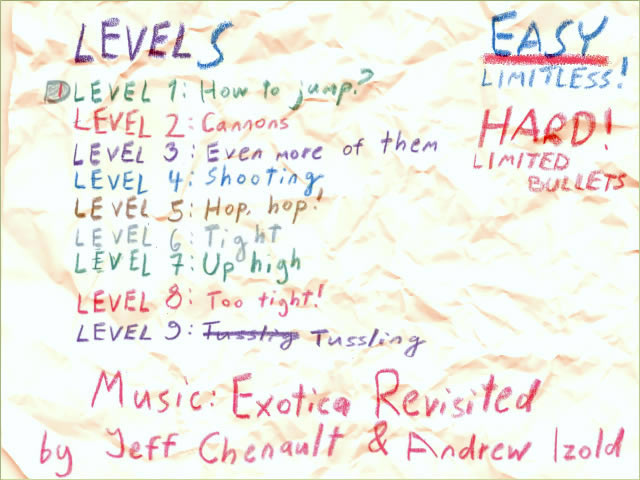 LEVELS
LEVEL 1: How to jump?
LEVEL 2: Cannons
LEVEL 3: Even more of them
LEVEL 4: Shooting
LEVEL 5: Hop, hop!
LEVEL 6: Tight
LEVEL 7: Up high
LEVEL 8: Too tight!
LEVEL 9: Tusslig Tussling
EASY
LIMITLESS!
HARD!
LIMITED
BULLETS
Music: Exotica Revisited
by Jeff Chenault & Andrew Izold